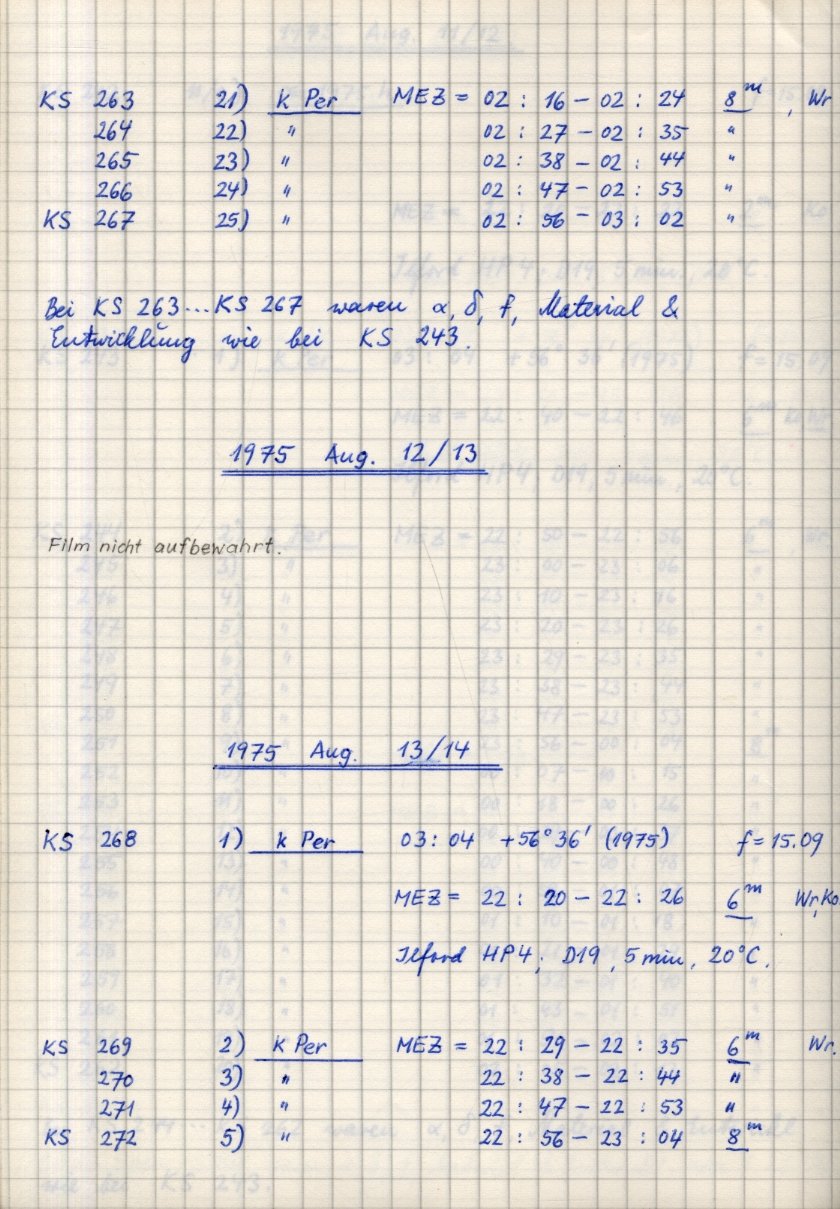 KS 263 21) k Per MEZ = 02 : 16 – 02 : 24 8ᵐ, Wr
264 22) " 02 : 27 – 02 : 35 "
265 23) " 02 : 38 – 02 : 44 "
266 24) " 02 : 47 – 02 : 53 "
KS 267 25) " 02 : 56 – 03 : 02 "
Bei KS 263...KS 267 waren α, δ, f, Material &
Entwicklung wie bei KS 243.
1975 Aug. 12/13
Film nicht aufbewahrt.
1975 Aug. 13/14
KS 268 1) k Per 03 : 04 +56° 36' (1975) f = 15.09
MEZ = 22 : 20 – 22 : 26 6ᵐ Wr, Ko
Ilford HP4, D19, 5 min, 20°C.
KS 269 2) k Per MEZ = 22 : 29 – 22 : 35 6ᵐ Wr.
270 3) " 22 : 38 – 22 : 44 "
271 4) " 22 : 47 – 22 : 53 "
KS 272 5) " 22 : 56 – 23 : 04 8ᵐ